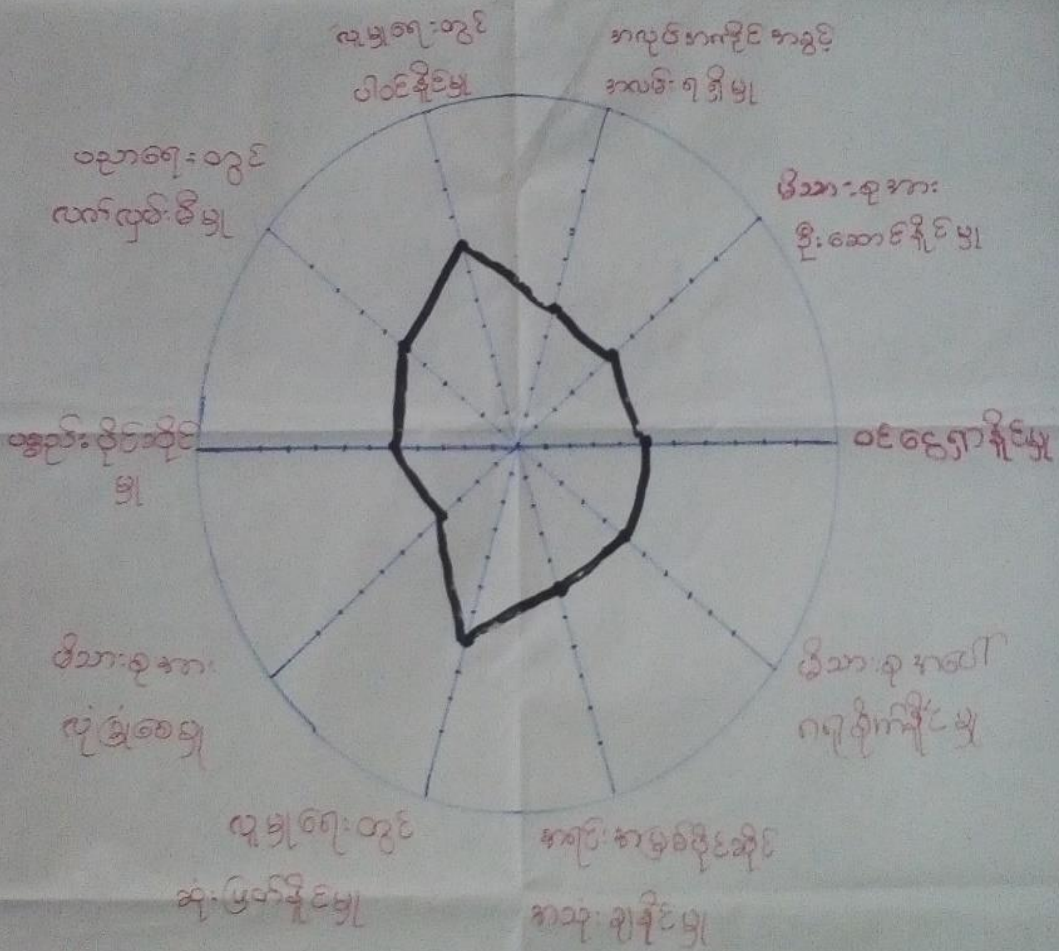 လူမှုရေးတွင်
ပါဝင်နိုင်မှု
အလုပ်အကိုင်အခွင့်
အလမ်းရရှိမှု
မိသားစုအား
ဦးဆောင်နိုင်မှု
ဝင်ငွေရှာနိုင်မှု
မိသားစုအပေါ်
ဂရုစိုက်နိုင်မှု
အရင်းအမြစ်ပိုင်ဆိုင်
အသုံးချနိုင်မှု
လူမှုရေးတွင်
ဆုံးဖြတ်နိုင်မှု
မိသားစုအား
လုံခြုံစေမှု
ပစ္စည်းပိုင်ဆိုင်
မှု
ပညာရေးတွင်
လက်လှမ်းမီမှု